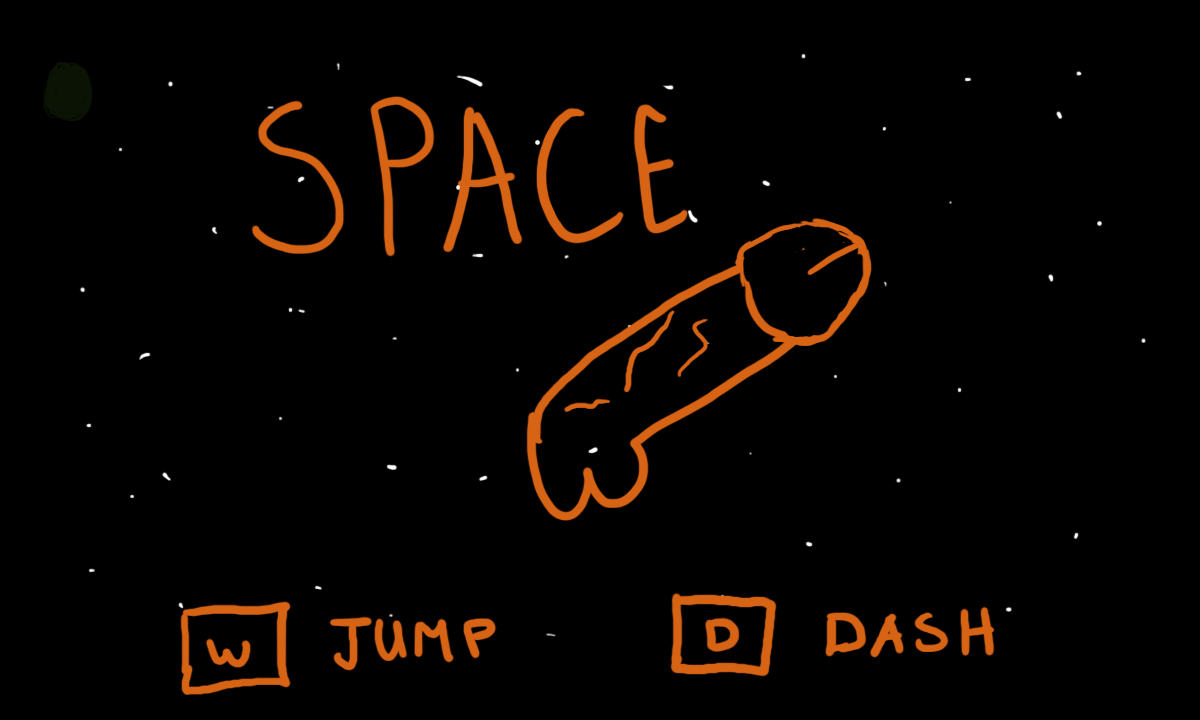 SPACE
W JUMP D DASH